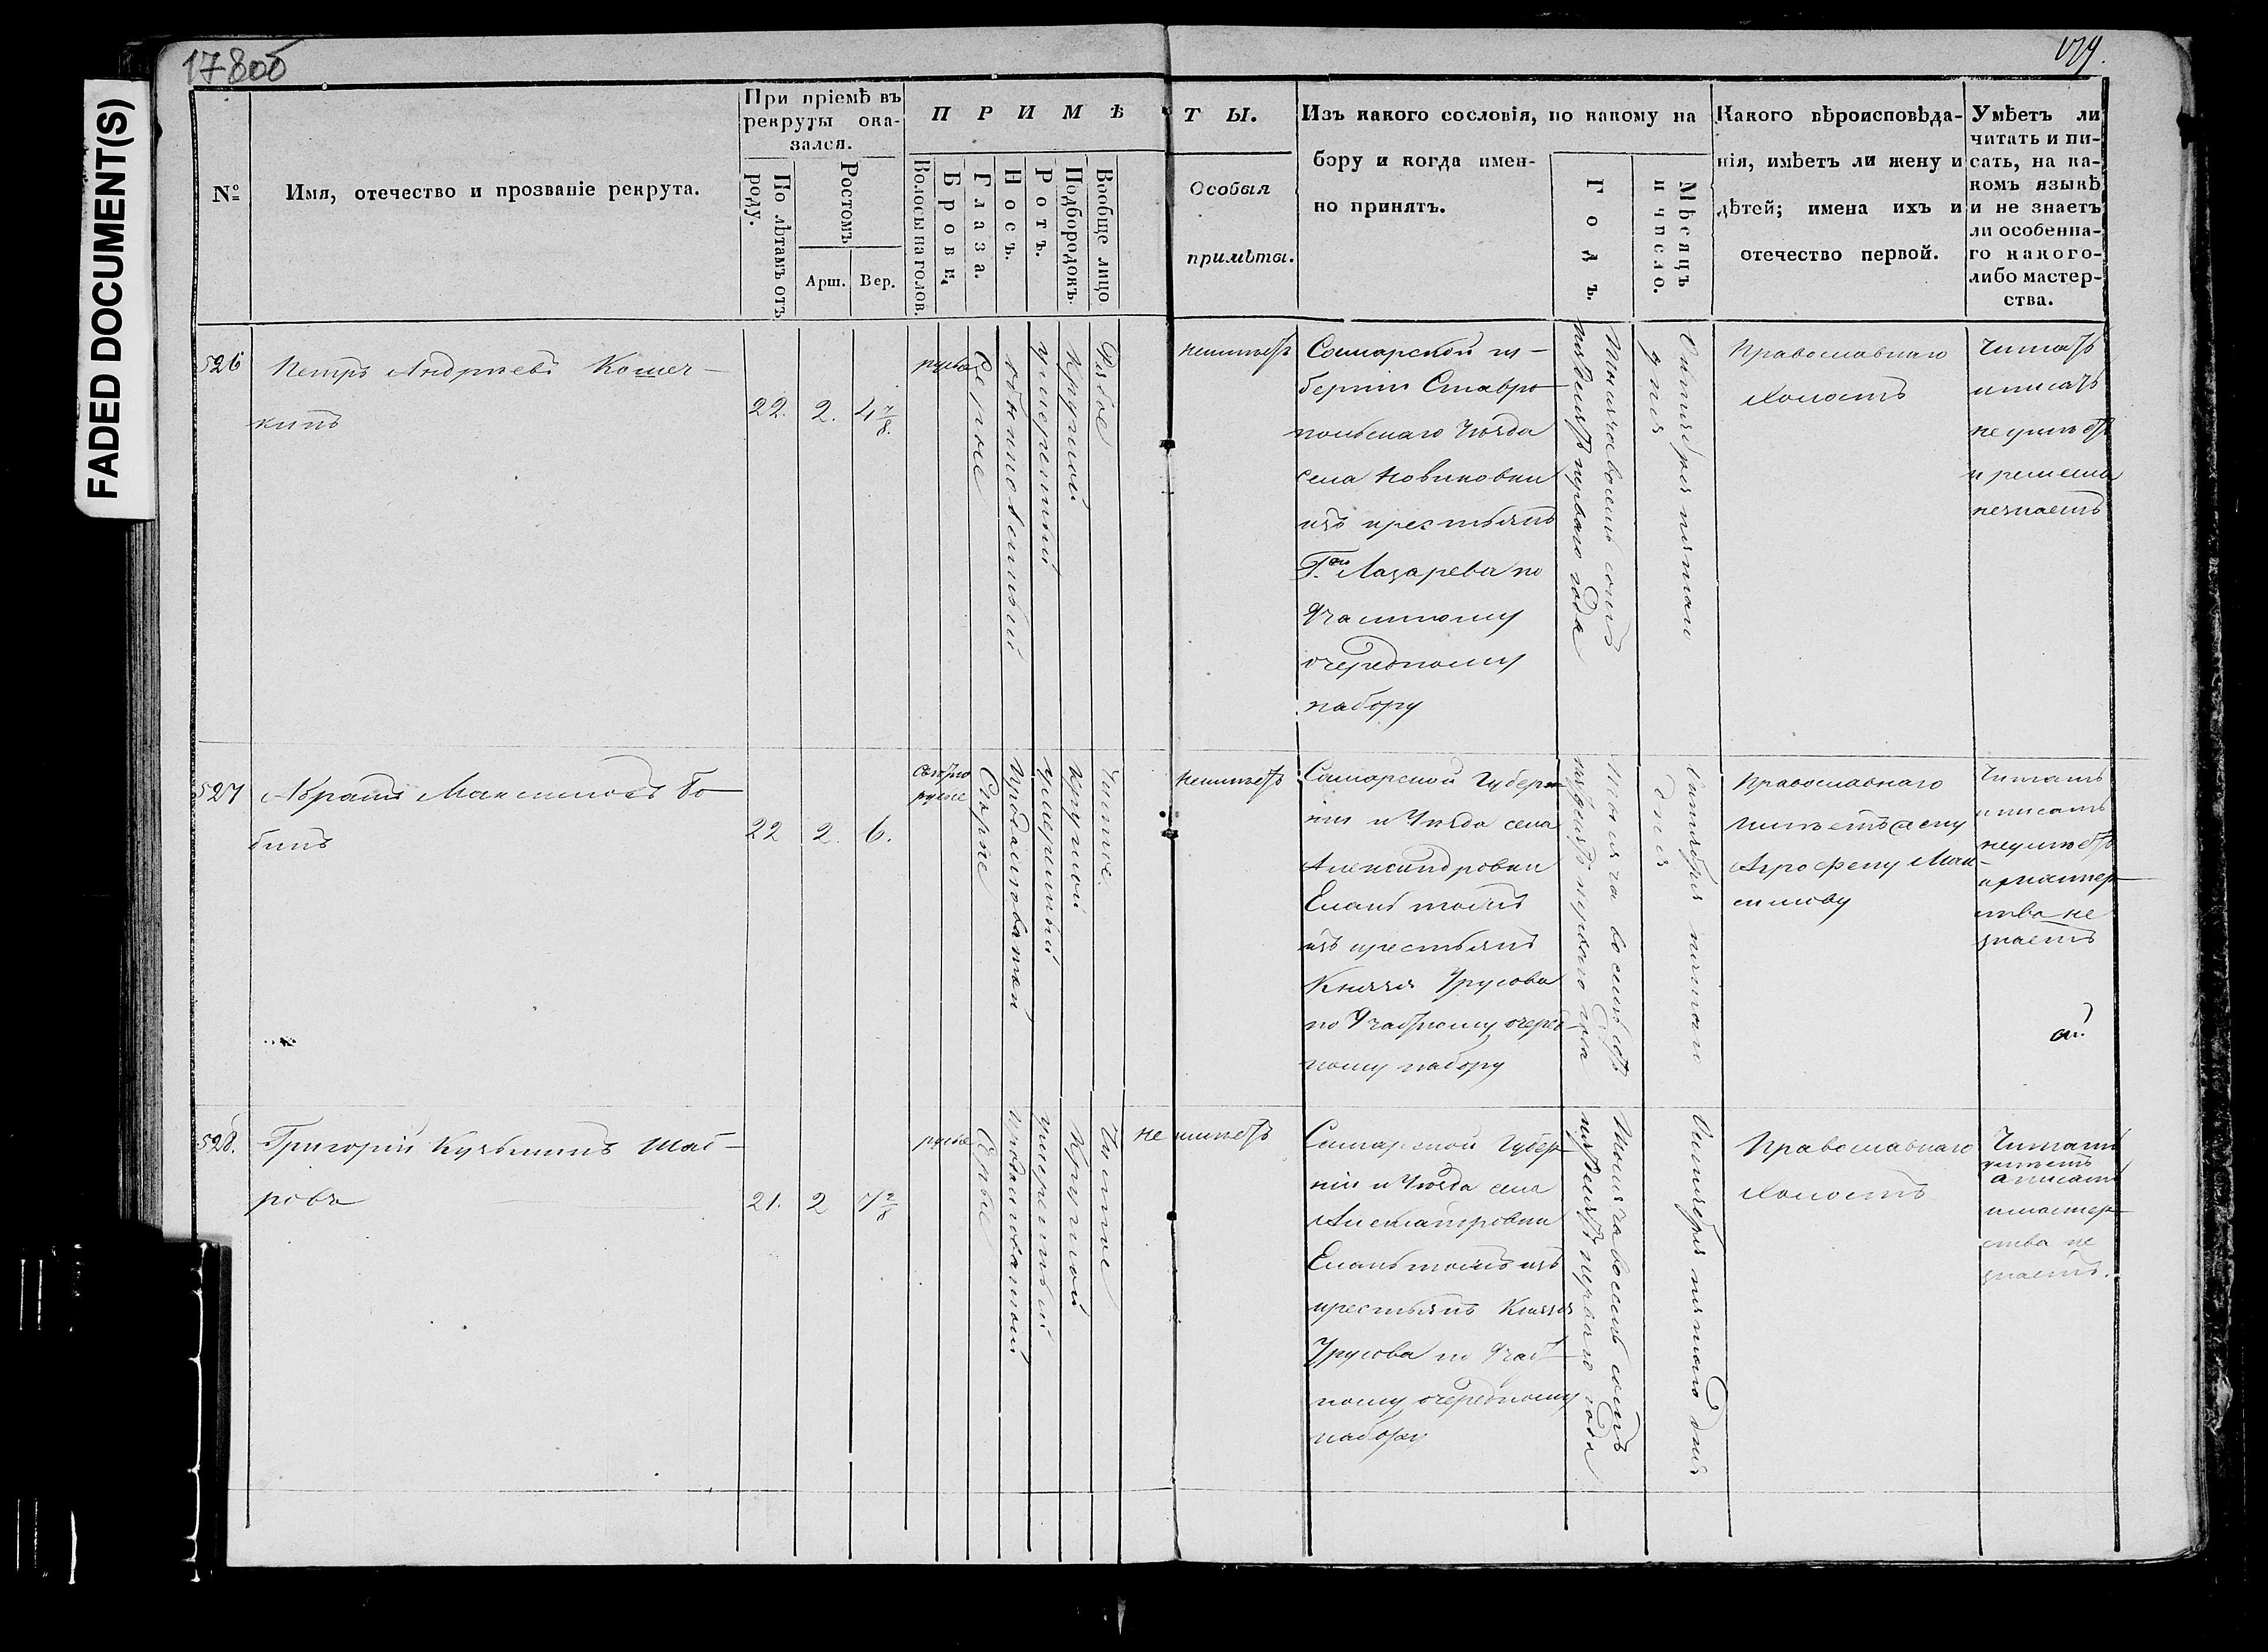 178об
179.
FADED DOCUMENT(S)
№
Имя, отечество и прозваніе рекрута.
При пріемѣ въ
рекруты ока-
зался.
По лѣтамъ отъ
роду.
Ростомъ
Арш.
Вер.
ПРИМѢ
ТЫ.
Волосы на голов.
Брови.
Глаза.
Носъ.
Ротъ.
Подбородокъ.
Вообще лицо
Особыя
примѣты.
Изъ какого сословія, по какому на
бору и когда имен-
но принятъ.
Годъ.
Мѣсяцъ
и число.
Какого вѣроисповѣда-
нія, имѣетъ ли жену и
дѣтей; имена ихъ и
отечество первой.
Умѣетъ ли
читать и пи-
сать, на ка-
комъ языкѣ
и не знаетъ
ли особенна-
го какого-
либо мастер-
ства.
526
Петръ Андреевъ Кошеч-
кинъ
22.
2.
4 7/8.
русые
Серые
обыкновенный
умеренный
Круглой
Рябое
неимѣетъ
Самарской гу-
берніи Ставро
польскаго Уѣзда
села Новиковки
изъ крестьянъ
Г.на Лазарева по
9 частному
очередному
набору
Тысяча восемь сотъ
пятьдесятъ перваго года
Октября пятаго
дня
Православнаго
Холостъ
Читать
и писать
не умѣетъ
и ремесла
незнаетъ
527
Абрамъ Максимовъ Бо
бинъ
22
2.
6.
светло
русые
Серые
Продолговатой
умеренный
круглой
Чистое.
неимѣетъ
Самарской Губер-
ніи и Уѣзда села
Александровки
Елань тожъ
изъ крестьянъ
Князя Урусова
по 9 частному очеред-
ному набору
Тысяча восемь сотъ
пятьдесятъ перваго года
Октября пятаго
дня
Православнаго
имѣетъ жену
Агрофену Мак-
симову
Читать
и писать
неумѣетъ
и мастер-
ства не
знаетъ
528.
Григорій Кузьминъ Шаб-
ровъ
21.
2
7 2/8
русые
Серые
Продолговатой
умеренный
Круглой
Чистое
не имѣетъ
Самарской Губер-
ніи и Уѣзда села
Александровки
Елань тожъ изъ
крестьянъ Князя
Урусова по 9 част-
ному очередному
набору
Тысяча восемь сотъ
пятьдесятъ перваго года
Октября пятаго дня
Православнаго
Холостъ
Читать
умѣетъ
а писать
и мастер-
ства не
знаетъ.